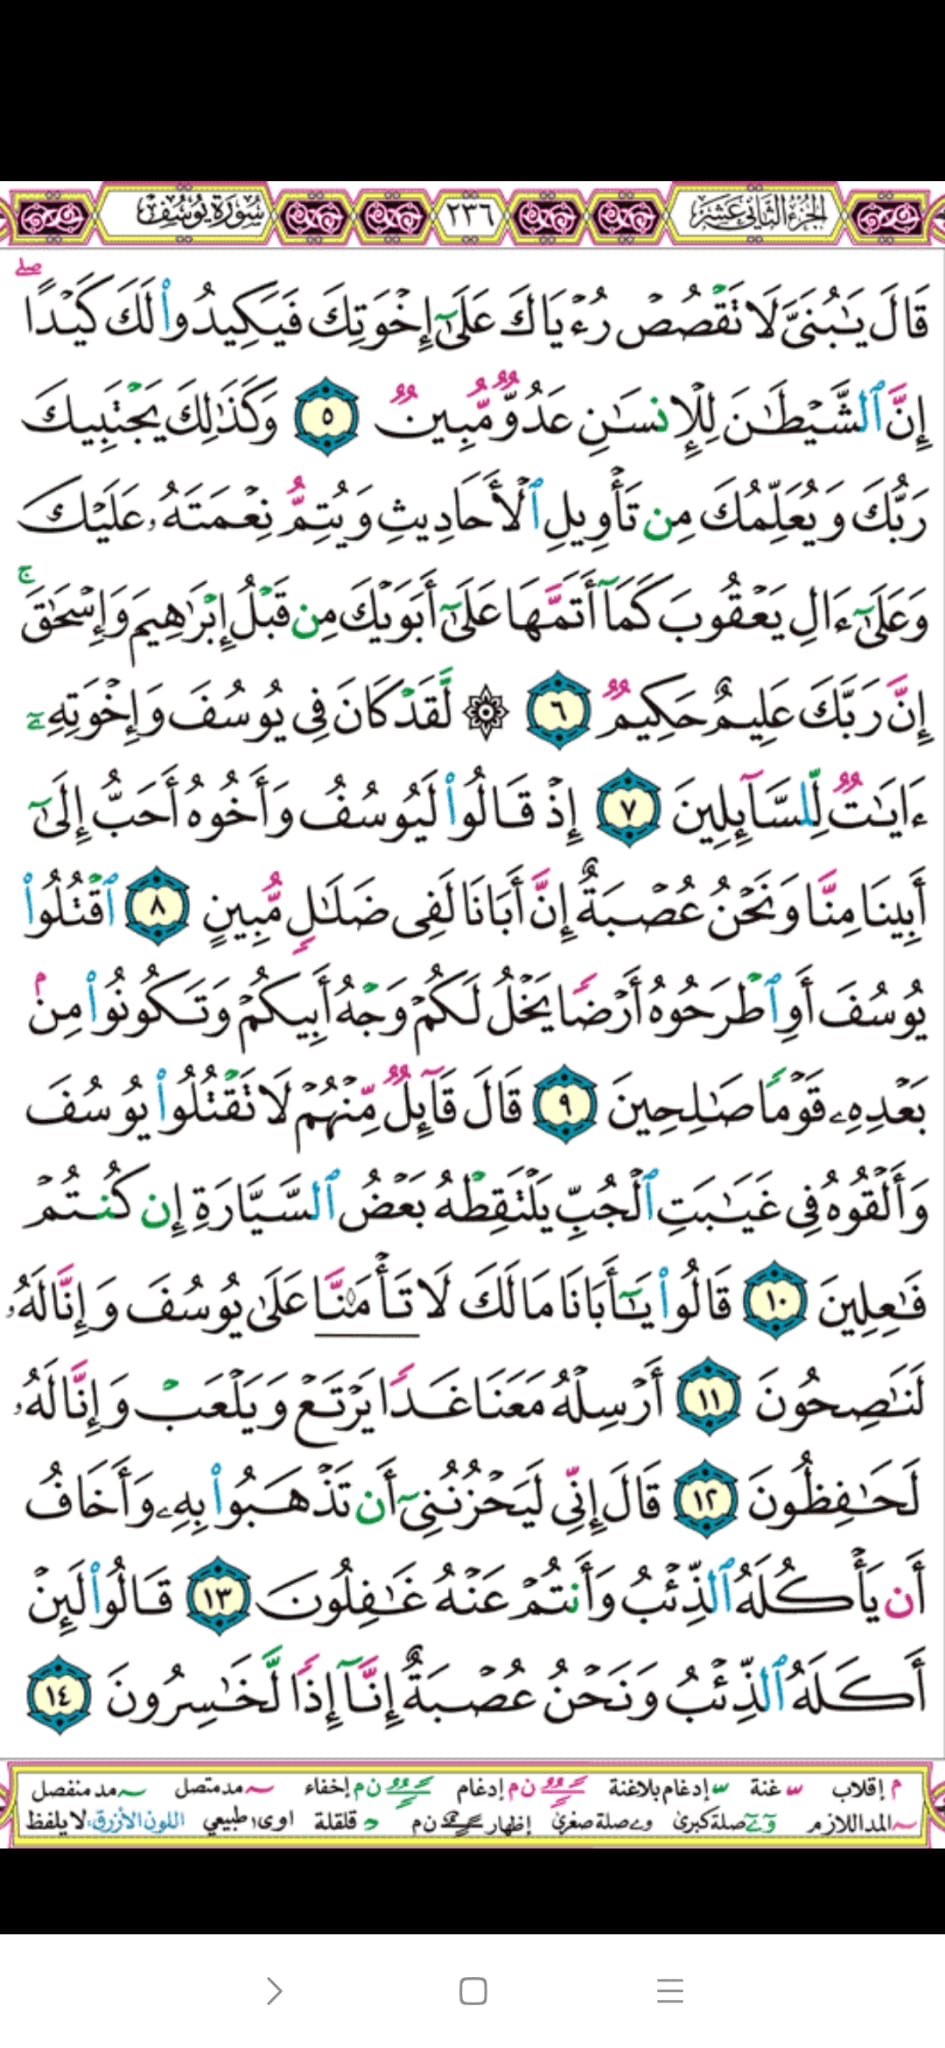 الجزء الثاني عشر ٢٣٦ سورة يوسف
قَالَ يَٰبُنَىَّ لَا تَقْصُصْ رُءْيَاكَ عَلَىٰٓ إِخْوَتِكَ فَيَكِيدُوا۟ لَكَ كَيْدًا ۖ
إِنَّ ٱلشَّيْطَٰنَ لِلْإِنسَٰنِ عَدُوٌّ مُّبِينٌ ٥ وَكَذَٰلِكَ يَجْتَبِيكَ
رَبُّكَ وَيُعَلِّمُكَ مِن تَأْوِيلِ ٱلْأَحَادِيثِ وَيُتِمُّ نِعْمَتَهُۥ عَلَيْكَ
وَعَلَىٰٓ ءَالِ يَعْقُوبَ كَمَآ أَتَمَّهَا عَلَىٰٓ أَبَوَيْكَ مِن قَبْلُ إِبْرَٰهِيمَ وَإِسْحَٰقَ ۚ
إِنَّ رَبَّكَ عَلِيمٌ حَكِيمٌ ٦ ۞ لَّقَدْ كَانَ فِى يُوسُفَ وَإِخْوَتِهِۦٓ
ءَايَٰتٌ لِّلسَّآئِلِينَ ٧ إِذْ قَالُوا۟ لَيُوسُفُ وَأَخُوهُ أَحَبُّ إِلَىٰٓ
أَبِينَا مِنَّا وَنَحْنُ عُصْبَةٌ إِنَّ أَبَانَا لَفِى ضَلَٰلٍ مُّبِينٍ ٨ ٱقْتُلُوا۟
يُوسُفَ أَوِ ٱطْرَحُوهُ أَرْضًا يَخْلُ لَكُمْ وَجْهُ أَبِيكُمْ وَتَكُونُوا۟ مِنۢ
بَعْدِهِۦ قَوْمًا صَٰلِحِينَ ٩ قَالَ قَآئِلٌ مِّنْهُمْ لَا تَقْتُلُوا۟ يُوسُفَ
وَأَلْقُوهُ فِى غَيَٰبَتِ ٱلْجُبِّ يَلْتَقِطْهُ بَعْضُ ٱلسَّيَّارَةِ إِن كُنتُمْ
فَٰعِلِينَ ١٠ قَالُوا۟ يَٰٓأَبَانَا مَا لَكَ لَا تَأْمَ۫نَّا عَلَىٰ يُوسُفَ وَإِنَّا لَهُۥ
لَنَٰصِحُونَ ١١ أَرْسِلْهُ مَعَنَا غَدًا يَرْتَعْ وَيَلْعَبْ وَإِنَّا لَهُۥ
لَحَٰفِظُونَ ١٢ قَالَ إِنِّى لَيَحْزُنُنِىٓ أَن تَذْهَبُوا۟ بِهِۦ وَأَخَافُ
أَن يَأْكُلَهُ ٱلذِّئْبُ وَأَنتُمْ عَنْهُ غَٰفِلُونَ ١٣ قَالُوا۟ لَئِنْ
أَكَلَهُ ٱلذِّئْبُ وَنَحْنُ عُصْبَةٌ إِنَّآ إِذًا لَّخَٰسِرُونَ ١٤
م إقلاب غنة إدغام بلاغنة ن م إدغام ن م إخفاء مد متصل مد منفصل
المد اللازم صلة كبرى صلة صغرى إظهار ن م قلقلة اوى طبيعي اللون الأزرق: لا يلفظ